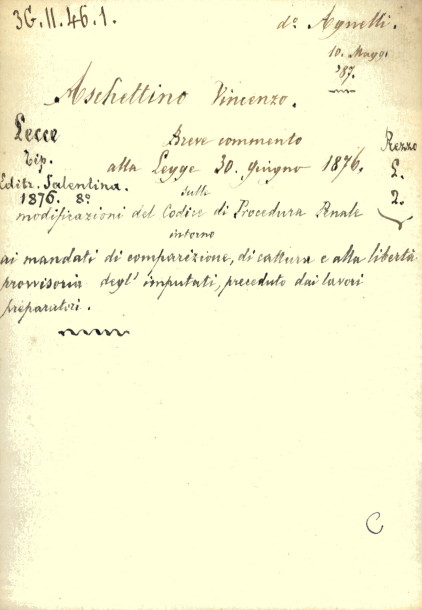 3G.II.46.1.
do Agnelli.
10. Maggo.
'87.
Aschettino Vincenzo.
Lecce
Tip.
Editr. Salentina.
1876. 8o
Breve commento
alla Legge 30. giugno 1876.
sulle
modificazioni del Codice di Procedura Penale
intorno
ai mandati di comparizione, di cattura e alla libertà
provvisoria degl' imputati, preceduto dai lavori
preparatori.
Prezzo
L.
2.
C